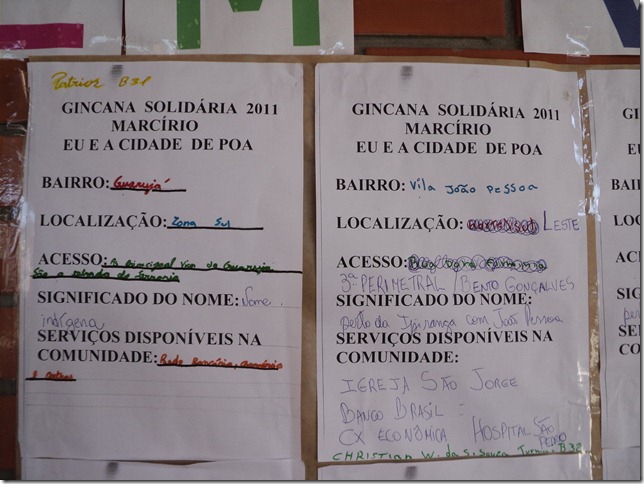 L M V
Patrick B31
GINCANA SOLIDÁRIA 2011
MARCÍRIO
EU E A CIDADE DE POA
BAIRRO: Guarujá
LOCALIZAÇÃO: Zona Sul
ACESSO: A principal Via do Guarujá
São a estrada da Serraria
SIGNIFICADO DO NOME: Nome
indígena
SERVIÇOS DISPONÍVEIS NA
COMUNIDADE: Rede Bancária, armazéns
e outros
GINCANA SOLIDÁRIA 2011
MARCÍRIO
EU E A CIDADE DE POA
BAIRRO: Vila João Pessoa
LOCALIZAÇÃO: LESTE
ACESSO:
3ª PERIMETRAL / BENTO GONÇALVES
SIGNIFICADO DO NOME:
perto da Ipiranga com João Pessoa
SERVIÇOS DISPONÍVEIS NA
COMUNIDADE:
IGREJA SÃO JORGE
BANCO BRASIL
CX ECONÔMICA HOSPITAL SÃO
PEDRO
CHRISTIAN W. da S. Souza Turma: B32
GINC
EU
BAIRR
LOCAL
ACESS
SIGNIF
SERVI
COMU